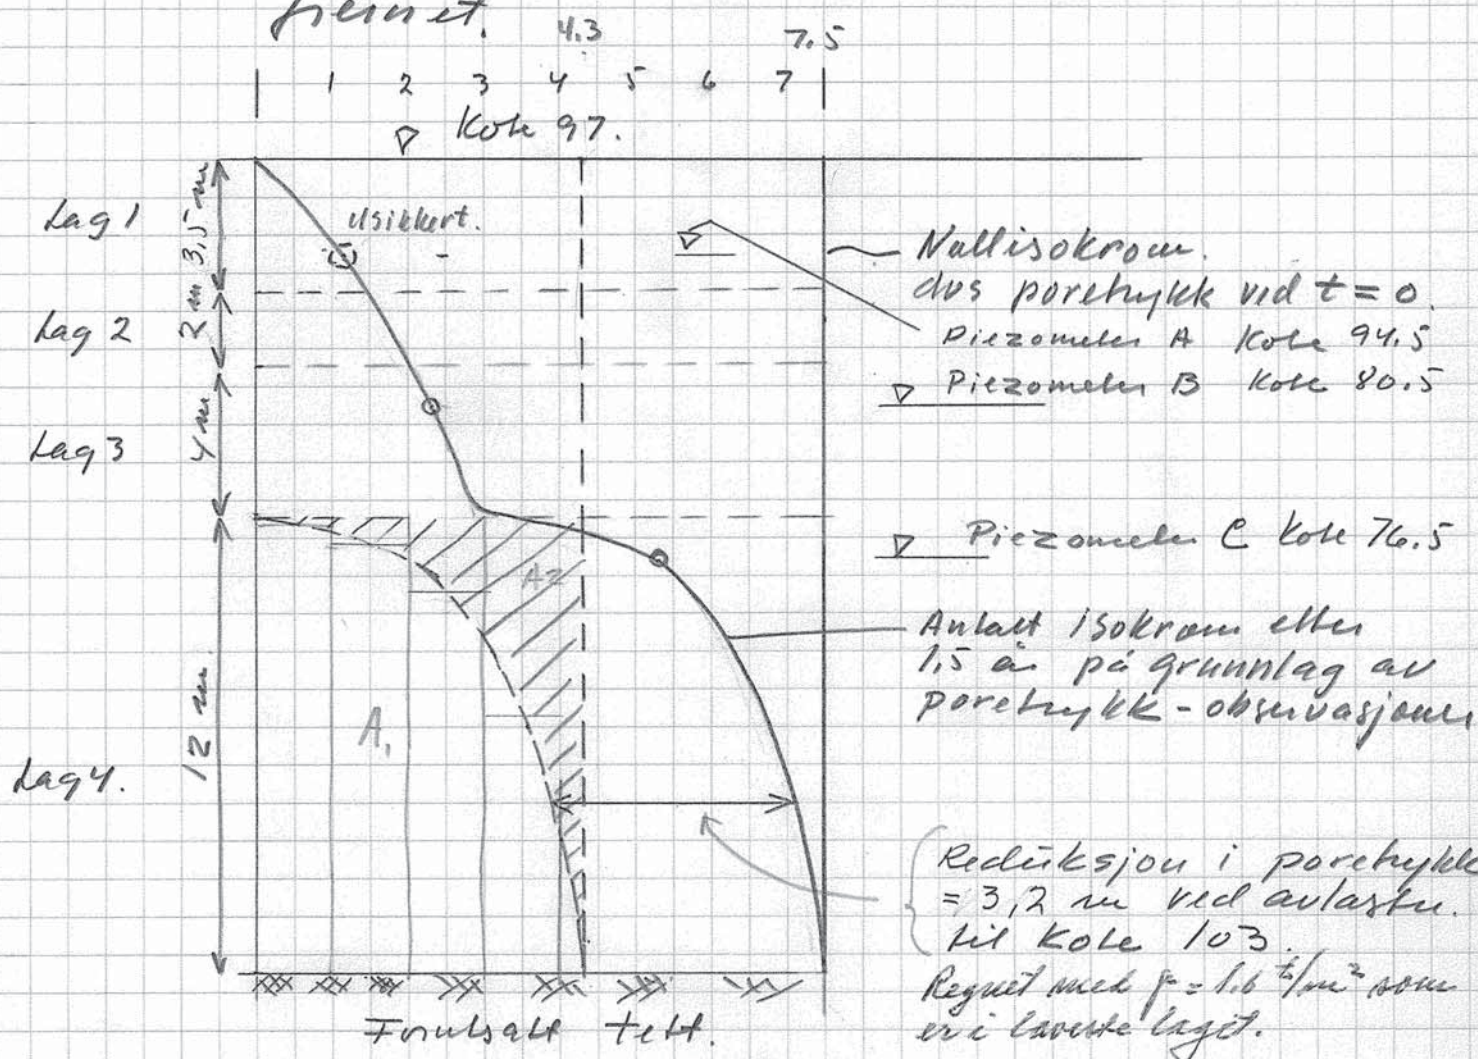 fjernet.
4.3 7.5
1 2 3 4 5 6 7
Kote 97.
Lag 1
3,5 m
usikkert.
Nullisokron.
dvs poretrykk ved t = 0.
Lag 2
2 m
Piezometer A Kote 94.5
Piezometer B Kote 80.5
Lag 3
4 m
Piezometer C Kote 76.5
A2
Antatt isokron etter
1,5 år på grunnlag av
poretrykk - observasjoner
A1
12 m
Lag 4.
Reduksjon i poretrykk
= 3,2 m ved avlastn.
til Kote 103.
Regnet med γ = 1.6 t/m² som
er i laveste laget.
Forutsatt tett.